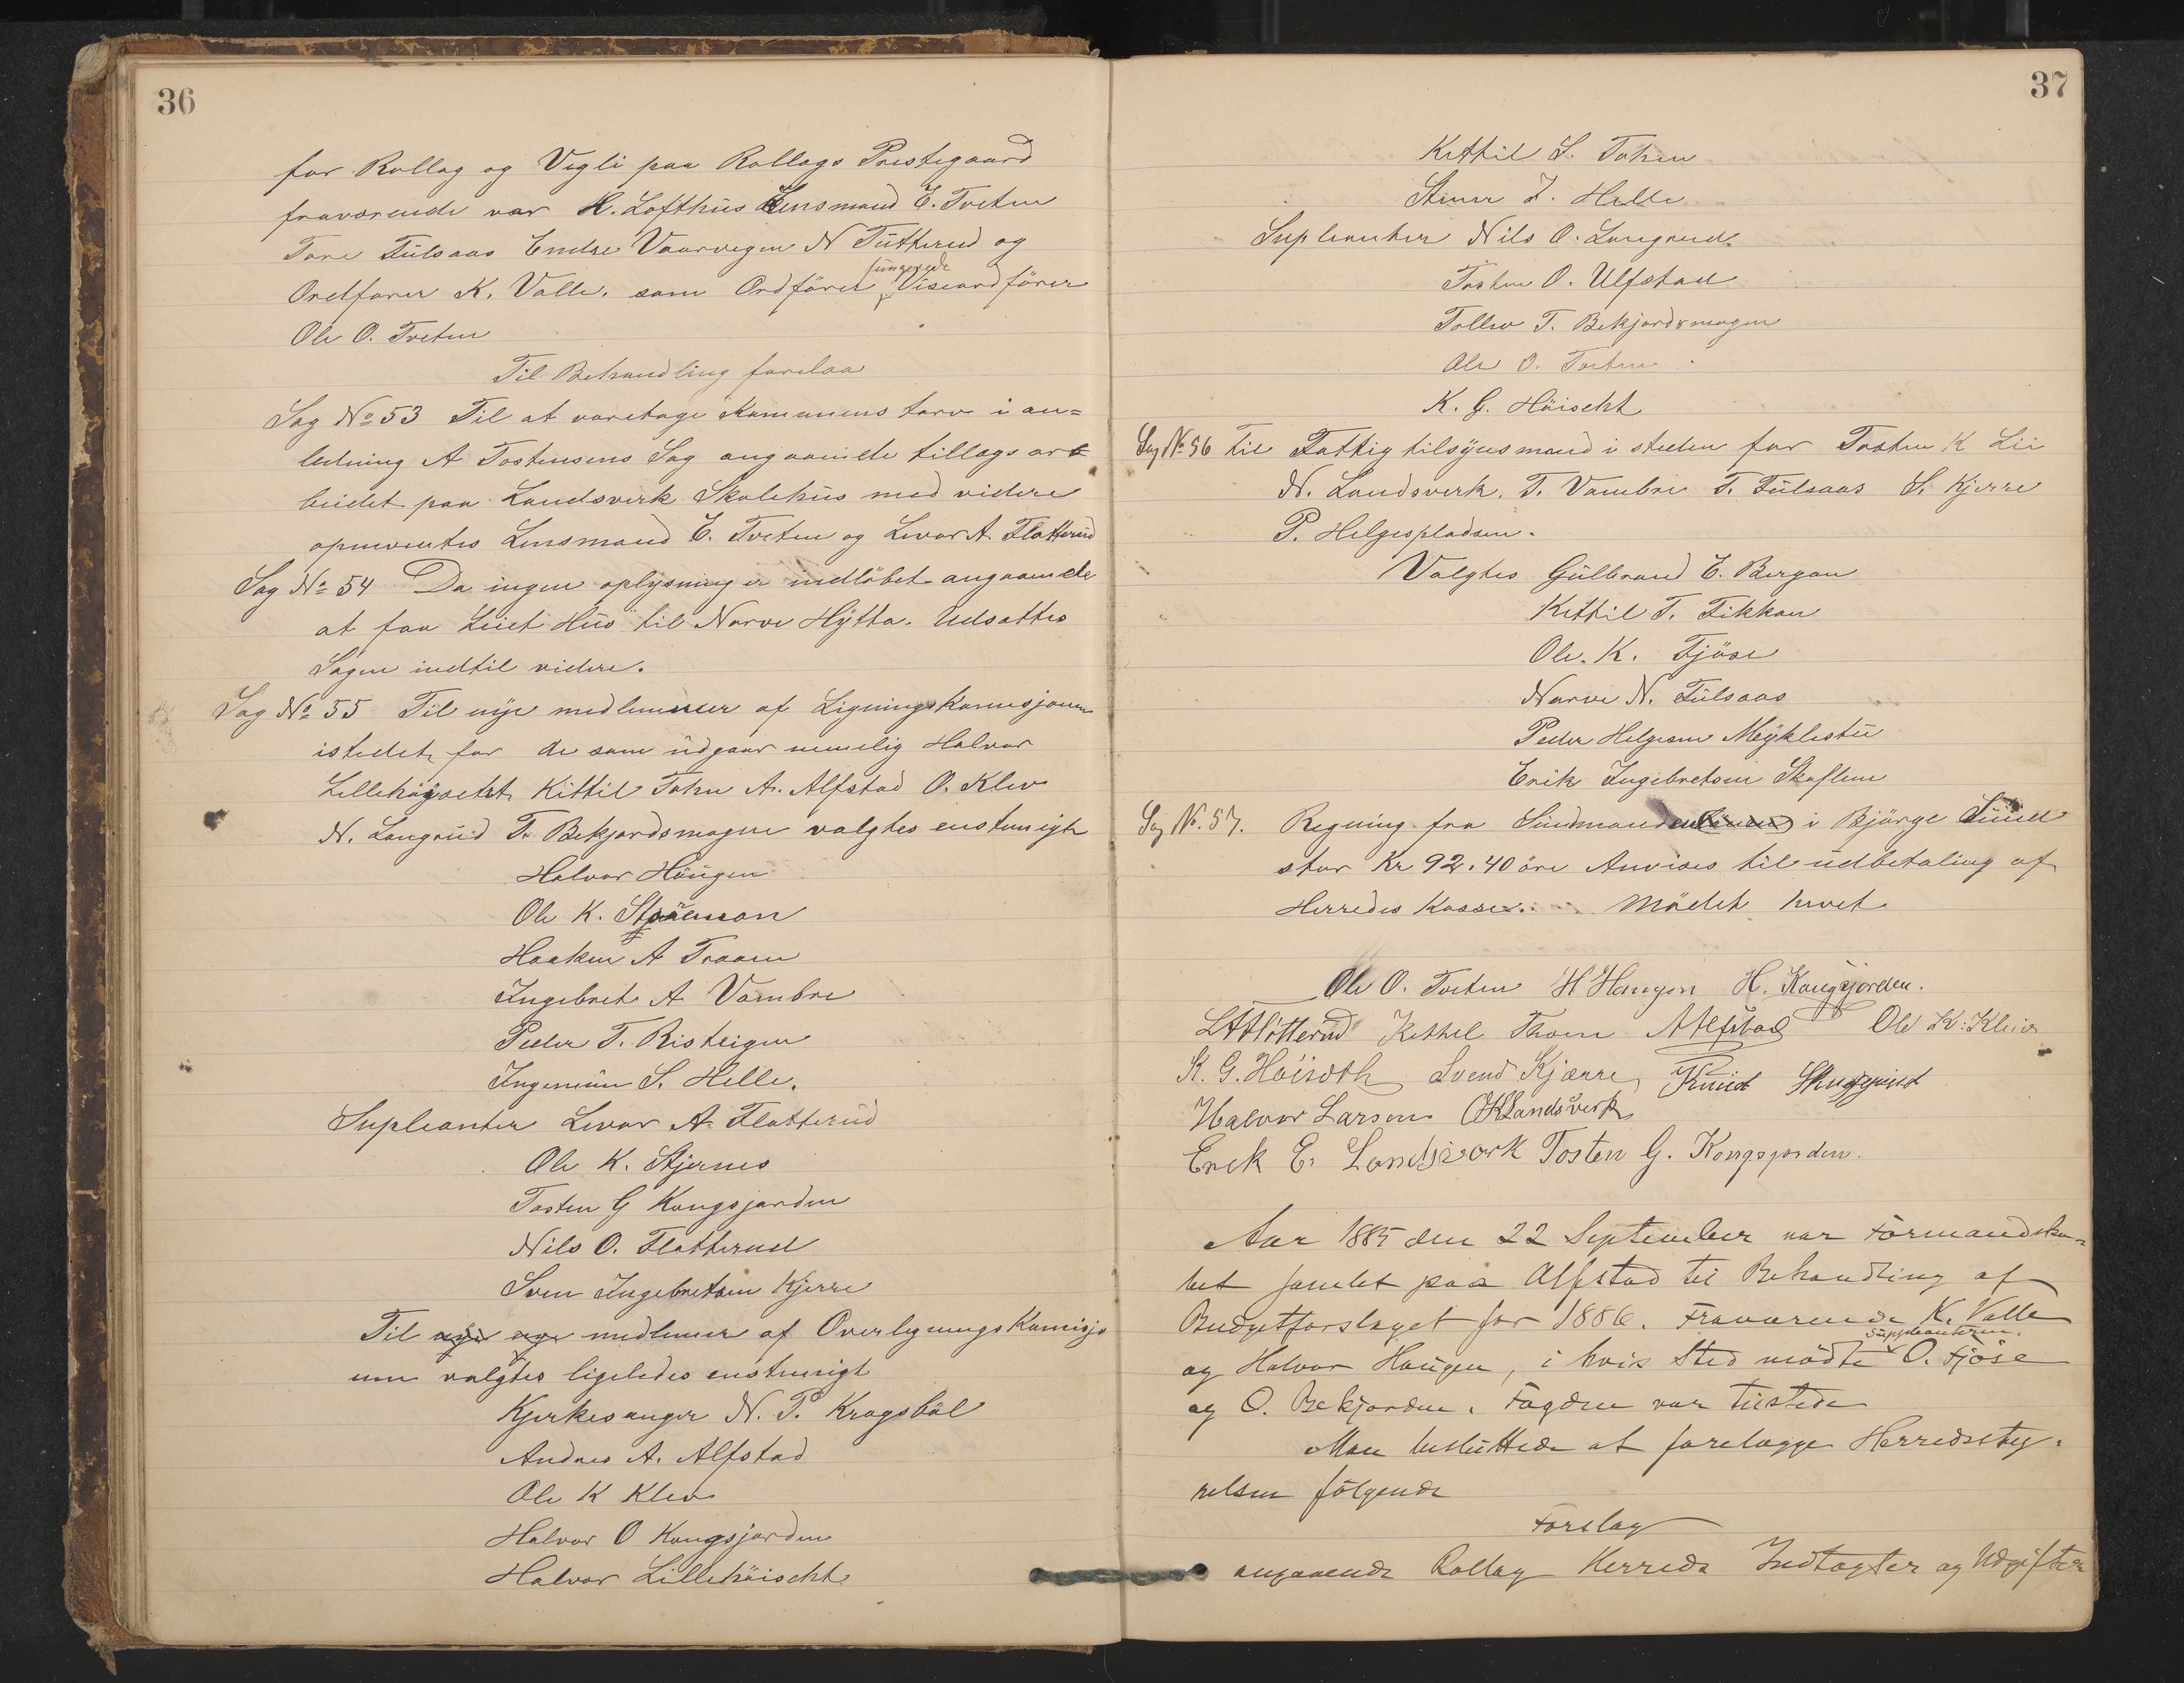 36
for Rollag og Vegli paa Rollags Prestegaard
fraværende var H. Lofthus Lensmand E. Tveten
Tore Fulsaas Endre Vaarvegen N Tutterud og
Ordfører K. Valle. som Ordfører fungerede Viseordfører
Ole O. Tveten
Til Behandling forelaa
Sag No 53 Til at varetage Kommunens tarv i an=
ledning A Tostensens Sag angaaende tillags ar
beidet paa Landsverk Skolehus med videre
opnevntes Lensmand E. Tveten og Levor A. Flatterud
Sag No 54 Da ingen oplysning er indløbet angaaende
at faa Leiet Hus til Narve Hytta. Udsattes
Sagen indtil videre.
Sag No 55 Til nye medlemmer af Ligningskomisjonen
istedet for de som udgaar nemelig Halvor
Lillehøyseth Kittil Tohn A. Alfstad O. Klev
N. Langrud T. Bekjordsmogen valgtes enstemigh
Halvor Haugen
Ole K.
Haaken A Traaen
Ingebret A Vambre
Peder T. Risteigen
Ingemun S. Helle.
Supleanter Levor A. Flatterud
Ole K. Stjernes
Tosten G Kongsjorden
Nils O. Flatterud
Sven Ingebretsen Kjerre
Til nye nye medlemer af Overligningskomisjo
nen valgtes ligeledes enstemigt
Kjerkesanger N. P. Kragsbøl
Andres A. Alfstad
Ole K Klev
Halvor O Kongsjorden
Halvor Lillehøiseht
37
Kettil L. Tohen
Steiner I. Helle
Supleanter Nils O. Langrud.
Tosten O. Ulfstad
Tollev T. Bekjordsmogen
Ole O. Tveten
K. G. Höiseht
Sag No 56 til Fattigtilsynsmand i steden for Tosten K Lii
N. Landsverk. T. Vambre T. Fulsaas S. Kjerre
P. Helgespladsen.
Valgtes Gulbrand E. Bergan
Kittil T. Fikkan
Ole. K. Fjöse
Narve N. Fulsaas
Peder Helgesen Meyklestu
Erik Ingebretsen Skaflem
Sag No. 57. Regning fra Sundmanden i Bjørge Sund
stor Kr 92.40 øre Anvises til udbetaling af
Herredes Kasse. Mødet hevet.
Ole O. Tveten H Haugen H. Kongsjorden.
L A Flotterud Kettel Thoen A Alfstad Ole K. Kleiv
K. G. Höiseth Svend Kjærre Knud
Halvor Larsen O K Landsverk
Erek E. Landsverk Tosten G. Kongsjorden.
Aar 1885 den 22 September var Formandska=
bet samlet paa Alfstad til Behandling af
Budgetforslaget for 1886. Fraværende K. Valle
og Halvor Haugen, i hvis Sted mødte Suppleanterne. O. Fjöse
og O. Bekjorden. Fogden var tilstede
Man besluttede at forelægge Herredssty-
relsen følgende
Forslag
angaaende Rollag Herreds Indtægter og Udgifter